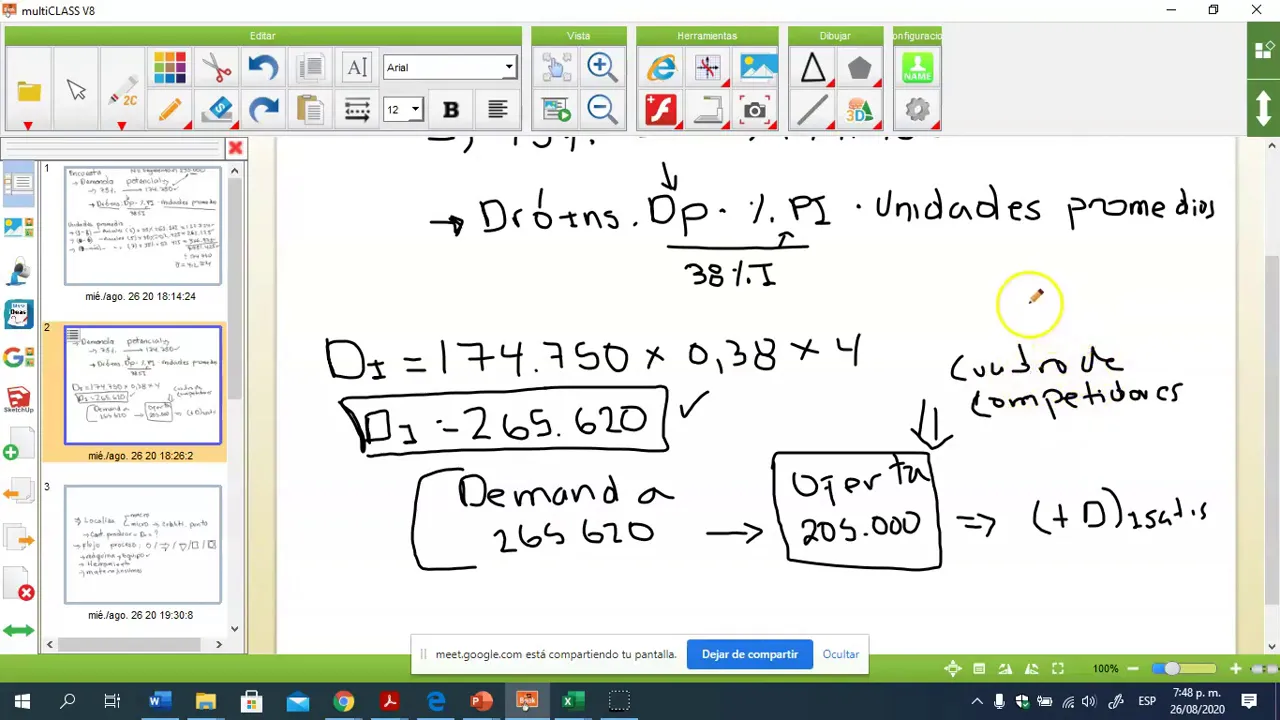 multiCLASS V8
Editar
Vista
Herramientas
Dibujar
onfiguracio
2C
AI
Arial
12
B
NAME
3D
1
mié./ago. 26 20 18:14:24
2
mié./ago. 26 20 18:26:2
3
mié./ago. 26 20 19:30:8
SketchUp
→ Dróins. Dp · %. PI · Unidades promedios
38%.I
DI = 174.750 × 0,38 × 4
DI = 265.620 ✓
Cuadro de
competidores
Demanda
265620
→
Oferta
205.000
=> (+D) Isatis
meet.google.com está compartiendo tu pantalla.
Dejar de compartir
Ocultar
100%
ESP
7:48 p. m.
26/08/2020